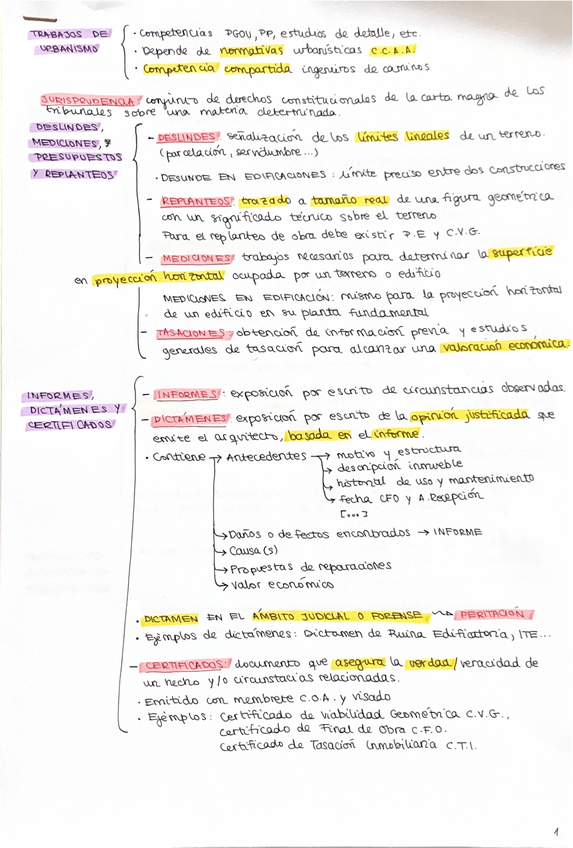 TRABAJOS DE URBANISMO
· Competencias PGOU, PP, estudios de detalle, etc.
· Depende de normativas urbanísticas C.C.A.A.
· Competencia compartida ingenieros de caminos
JURISPRUDENCIA / conjunto de derechos constitucionales de la carta magna de los
tribunales sobre una materia determinada.
DESLINDES,
MEDICIONES, Y
PRESUPUESTOS
Y REPLANTEOS
- DESLINDES: señalización de los límites lineales de un terreno.
(parcelación, servidumbre...)
· DESLINDE EN EDIFICACIONES: límite preciso entre dos construcciones
- REPLANTEOS: trazado a tamaño real de una figura geométrica
con un significado técnico sobre el terreno
Para el replanteo de obra debe existir P.E y C.V.G.
- MEDICIONES: trabajos necesarios para determinar la superficie
en proyección horizontal ocupada por un terreno o edificio
MEDICIONES EN EDIFICACIÓN: mismo para la proyección horizontal
de un edificio en su planta fundamental
- TASACIONES: obtención de información previa y estudios
generales de tasación para alcanzar una valoración económica.
INFORMES,
DICTÁMENES Y
CERTIFICADOS
- INFORMES: exposición por escrito de circunstancias observadas.
- DICTÁMENES: exposición por escrito de la opinión justificada que
emite el arquitecto, basada en el informe.
· Contiene → Antecedentes → motivo y estructura
→ descripción inmueble
→ historial de uso y mantenimiento
→ fecha CFO y A.Recepción
[...]
→ Daños o defectos encontrados → INFORME
→ Causa(s)
→ Propuestas de reparaciones
→ Valor económico
· DICTAMEN EN EL ÁMBITO JUDICIAL O FORENSE → PERITACIÓN
· Ejemplos de dictámenes: Dictamen de Ruina Edificatoria, ITE...
- CERTIFICADOS: documento que asegura la verdad/veracidad de
un hecho y/o circunstacias relacionadas.
· Emitido con membrete C.O.A. y visado
· Ejemplos: Certificado de Viabilidad Geométrica C.V.G.,
Certificado de Final de Obra C.F.O.
Certificado de Tasación Inmobiliaria C.T.I.
1